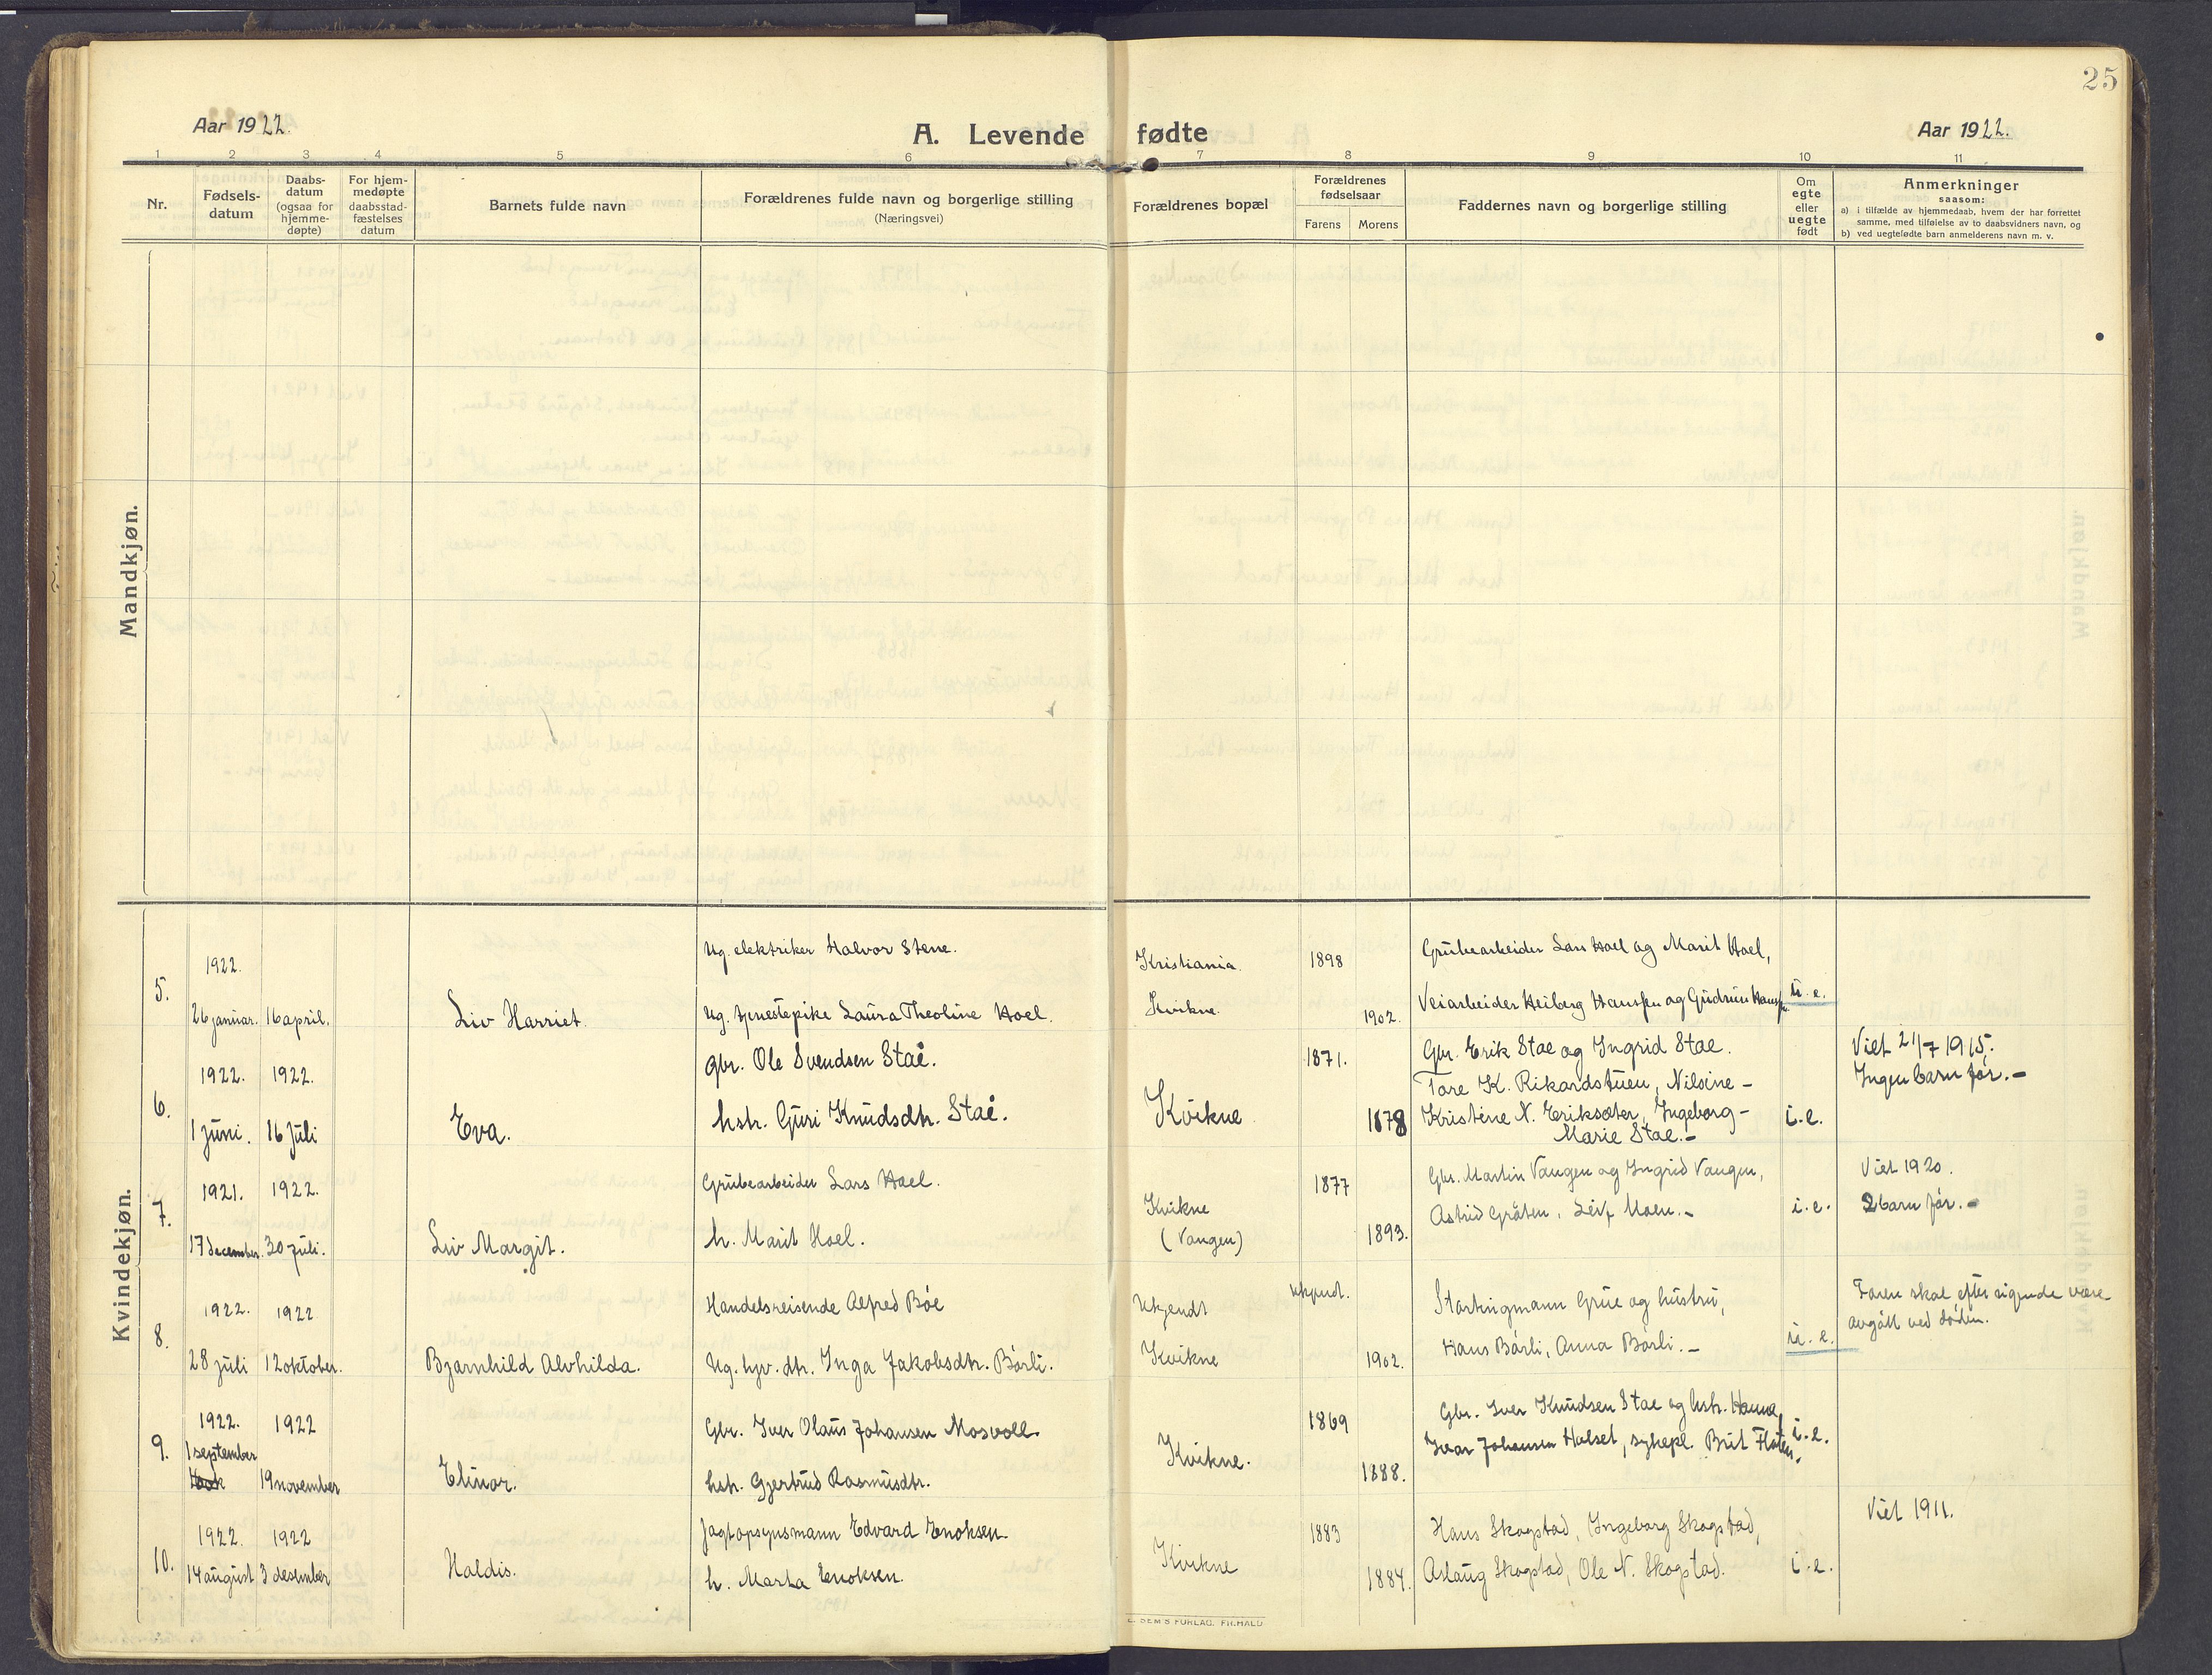 25
Aar 1922.
A. Levende fødte
Aar 1922.
1 2 3 4 5 6 7 8 9 10 11
Nr.
Fødsels-
datum
Daabs-
datum
(ogsaa for
hjemme-
døpte)
For hjem-
medøpte
daabsstad-
fæstelses
datum
Barnets fulde navn
Forældrenes fulde navn og borgerlige stilling
(Næringsvei)
Forældrenes bopæl
Forældrenes
fødselsaar
Farens Morens
Faddernes navn og borgerlige stilling
Om
egte
eller
uegte
født
Anmerkninger
saasom:
a) i tilfælde av hjemmedaab, hvem der har forrettet
samme, med tilføielse av to daabsvidners navn, og
b) ved uegtefødte barn anmelderens navn m. v.
Mandkjøn.
Kvindekjøn.
5.
1922.
26 januar. 16 april.
Liv Harriet.
Ug. elektriker Halvor Stene.
Ug. tjenestepike Laura Theoline Hoel.
Kristiania.
Kvikne.
1898
1902.
Grubearbeider Lars Hoel og Marit Hoel,
Veiarbeider Heiberg Hanssen og Gudrun
u. e.
6.
1922. 1922.
1 juni. 16 juli
Eva.
Gbr. Ole Svendsen Stai.
hstr. Guri Knudsdtr. Stai.
Kvikne
1871.
1878
Gbr. Erik Stae og Ingrid Stae.
Tore K. Rikardstuen, Nilsine-
Kristine N. Eriksæter, Ingeborg-
Marie Stae.-
i. e.
Viet 21/7 1915.
Ingen barn før.-
7.
1921. 1922.
17 december. 30 juli.
Liv Margit.
Grubearbeider Lars Hoel.
h. Marit Hoel.
Kvikne
(Vangen)
1877
1893.
Gbr. Martin Vangen og Ingrid Vangen,
Astrid Gråten, Leif Moen.-
i. e.
Viet 1920.
2 barn før.-
8.
1922. 1922
28 juli 12 oktober.
Bjarnhild Alvhilda.
Handelsreisende Alfred Böe
Ug. hjv. dtr. Inga Jakobsdtr. Börli.
Ukjendt
Kvikne
ukjendt.
1902.
Stortingmann Grue og hustru,
Hans Börli, Anna Börli.-
u. e.
Faren skal eftersigende være
avgått ved döden.
9.
1922. 1922
1 september
19 november
Elinor.
Gbr. Iver Olaus Johansen Mosvoll
hstr. Gjertrud Rasmusdtr.
Kvikne.
1869
1888.
Gbr. Iver Knudsen Stae og hstr. Hanna,
Ivar Johansen Halset, sykepl. Brit Floten.
i. e.
10.
1922. 1922
14 august 3 desember
Haldis.
Jagtopsynsmann Edvard Enoksen.
h. Marta Enoksen.
Kvikne
1883
1884.
Hans Skogstad, Ingeborg Skogstad,
Aslaug Skogstad, Ole N. Skogstad.
i. e.
Viet 1911.
DEM'S FORLAG. FR.HALD